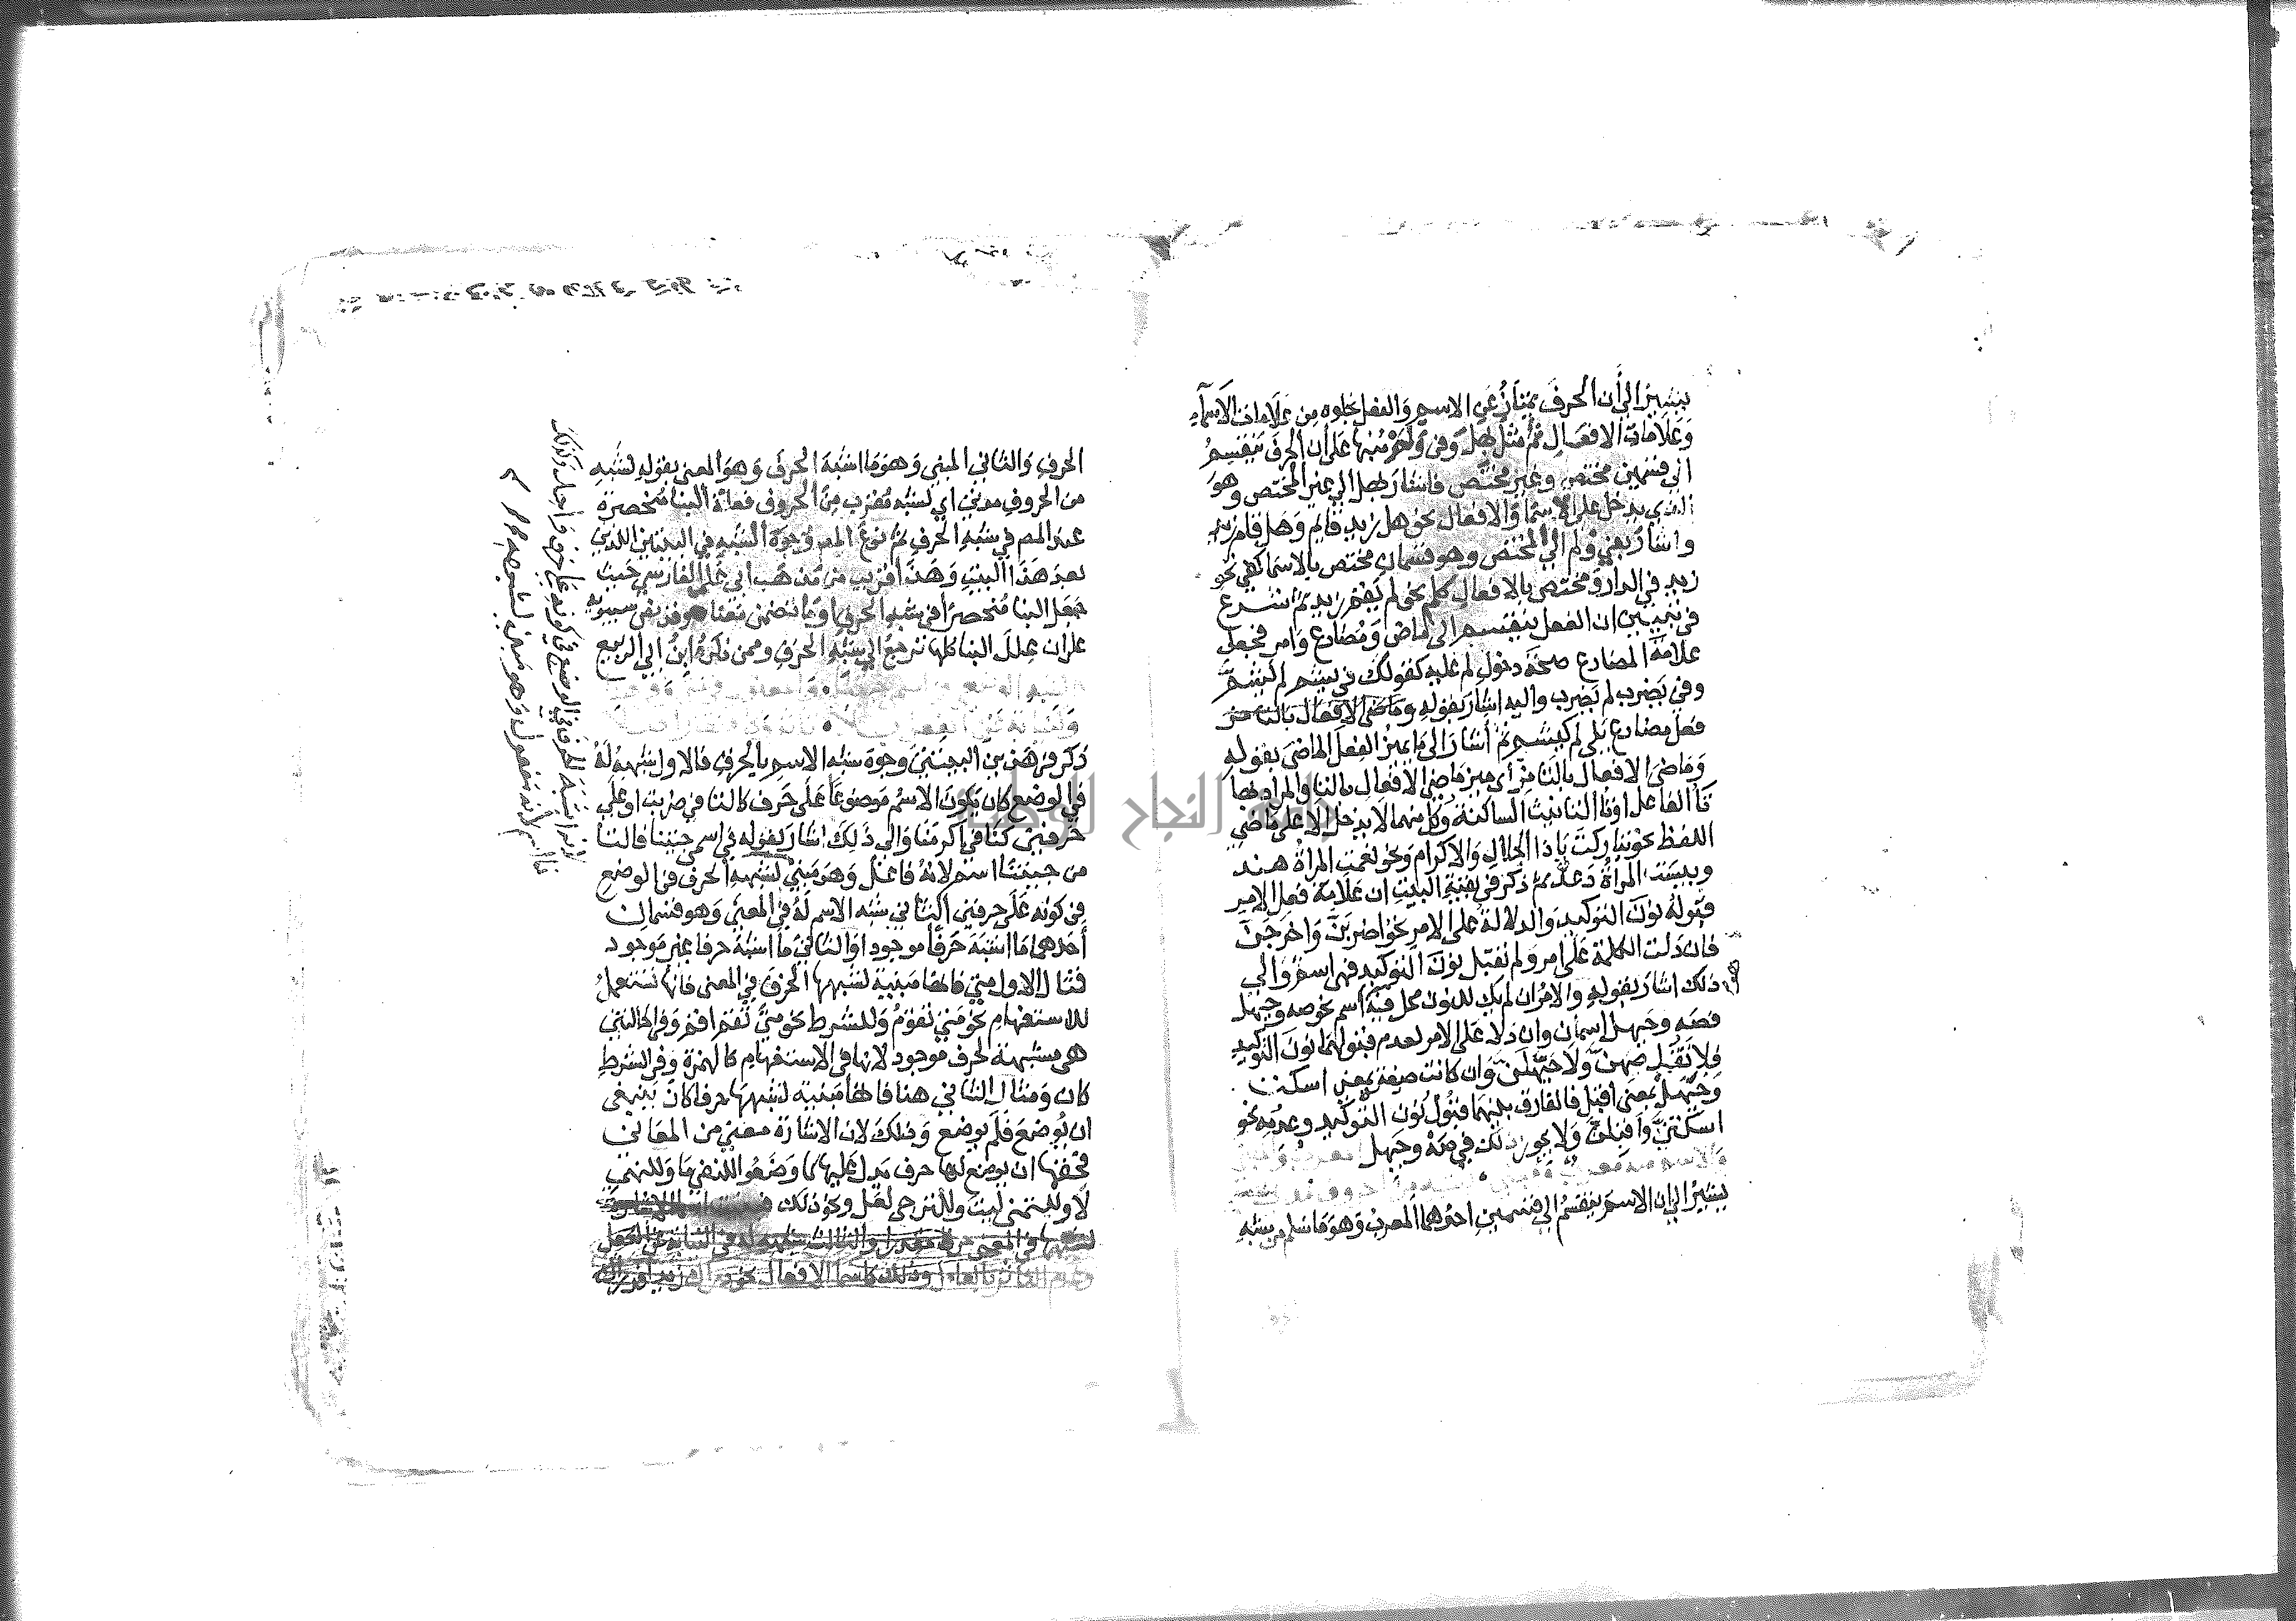 يشير الى أن الحرف يمتاز عن الاسم والفعل بخلوه من علامات الاسماء
وعلامات الافعال ثم مثل بهل وفي ولم منبها على أن الحرف ينقسم
الى قسمين مختص وغير مختص فاشار بهل الى غير المختص وهو
الذي يدخل على الاسما والافعال نحو هل زيد قايم وهل قام زيد
واشار بفي ولم الى المختص وهو قسمان مختص بالاسما كفي نحو
زيد في الدار ومختص بالافعال كلم نحو لم يقم زيد ثم شرع
في تبيين ان الفعل ينقسم الى ماض ومضارع وامر فجعل
علامة المضارع صحة دخول لم عليه كقولك في يشم لم يشم
وفي يضرب لم يضرب واليه اشار بقوله وماضي الافعال بالتا مز
فعل مضارع يلي لم كيشم ثم أشار الى ما يميز الفعل الماضي بقوله
وماضي الافعال بالتا مز أي ميز ماضي الافعال بالتا والمراد بها
تا الفاعل او تا التانيث الساكنة وكل منهما لا يدخل الا على ماضي
اللفظ نحو تباركت يا ذا الجلال والاكرام ونحو نعمت المراة هند
وبيست المراة دعد ثم ذكر في بقية البيت ان علامة فعل الامر
قبوله نون التوكيد والدلالة على الامر نحو اضربن واخرجن
فان دلت الكلمة على امر ولم تقبل نون التوكيد فهي اسم والى
ذلك اشار بقوله والامر ان لم يك للنون محل فيه اسم نحو صه وحيهل
فصه وحيهل اسمان وان دلا على الامر لعدم قبولهما نون التوكيد
فلا تقول صهن ولا حيهلن وان كانت صيغة بمعنى اسكت
وحيهل بمعنى اقبل فالفارق بينهما قبول نون التوكيد وعدمه نحو
اسكتن واقبلن ولا يجوز ذلك في صه وحيهل
والاسم منه معرب ومبني لشبه من الحروف مدني
يشير الى ان الاسم ينقسم الى قسمين احدهما المعرب وهو ما سلم من شبه
الحرف والثاني المبني وهو ما اشبه الحرف وهو المعني بقوله لشبه
من الحروف مدني اي لشبه مقرب من الحروف فعلة البنا منحصرة
عند المص في شبه الحرف ثم نوع المص وجوه الشبه في البيتين اللذين
بعد هذا البيت وهذا قريب من مذهب أبي علي الفارسي حيث
جعل البنا منحصرا في شبه الحرف او ما تضمن معناه وقد نص سيبويه
على ان علل البنا كلها ترجع الى شبه الحرف وممن ذكره ابن ابي الربيع
ذكر في هذين البيتين وجوه شبه الاسم بالحرف فالاول شبهه له
في الوضع كان يكون الاسم موضوعا على حرف كالتا في ضربت او على
حرفين كنا في اكرمنا والى ذلك اشار بقوله في اسمي جيتنا فالتا
من جيتنا اسم لانه فاعل وهو مبني لشبهه الحرف في الوضع
في كونه على حرفين الثاني شبه الاسم له في المعنى وهو قسمان
أحدهما ما اشبه حرفا موجودا والثاني ما اشبه حرفا غير موجود
فمثال الاول متى فانها مبنية لشبهها الحرف في المعنى فانها تستعمل
للاستفهام نحو متى تقوم وللشرط نحو متى تقم اقم وفي الحالتين
هي مشبهة لحرف موجود لانها في الاستفهام كالهمزة وفي الشرط
كان ومثال الثاني هنا فانها مبنية لشبهها حرفا كان ينبغي
ان يوضع فلم يوضع وذلك لان الاشارة معنى من المعاني
فحقها ان يوضع لها حرف يدل عليها كما وضعوا للنفي ما وللنهي
لا وللتمني ليت وللترجي لعل ونحو ذلك
لشبهها في المعنى حرفا مقدرا والثالث شبهه له في النيابة عن الفعل
وعدم التاثر بالعامل وذلك كاسما الافعال نحو دراك زيدا